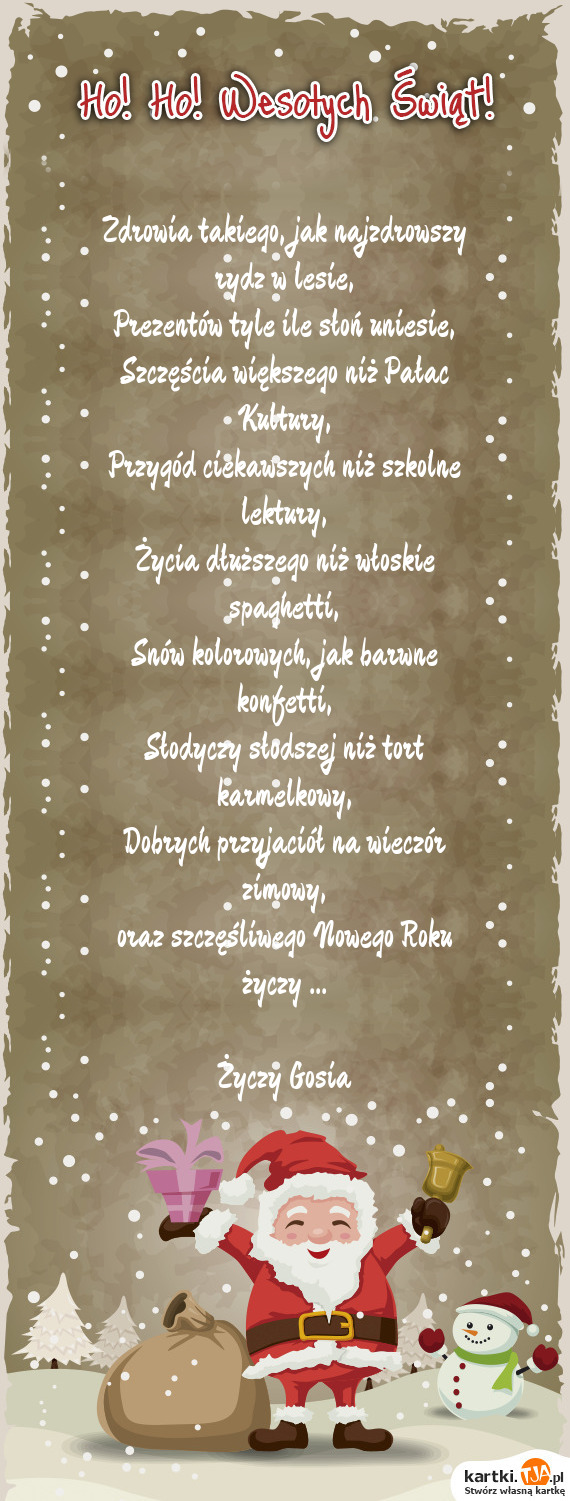 Ho! Ho! Wesołych Świąt!
Zdrowia takiego, jak najzdrowszy
rydz w lesie,
Prezentów tyle ile słoń uniesie,
Szczęścia większego niż Pałac
Kultury,
Przygód ciekawszych niż szkolne
lektury,
Życia dłuższego niż włoskie
spaghetti,
Snów kolorowych, jak barwne
konfetti,
Słodyczy słodszej niż tort
karmelkowy,
Dobrych przyjaciół na wieczór
zimowy,
oraz szczęśliwego Nowego Roku
życzy ...
Życzy Gosia
kartki.TJA.pl
Stwórz własną kartkę